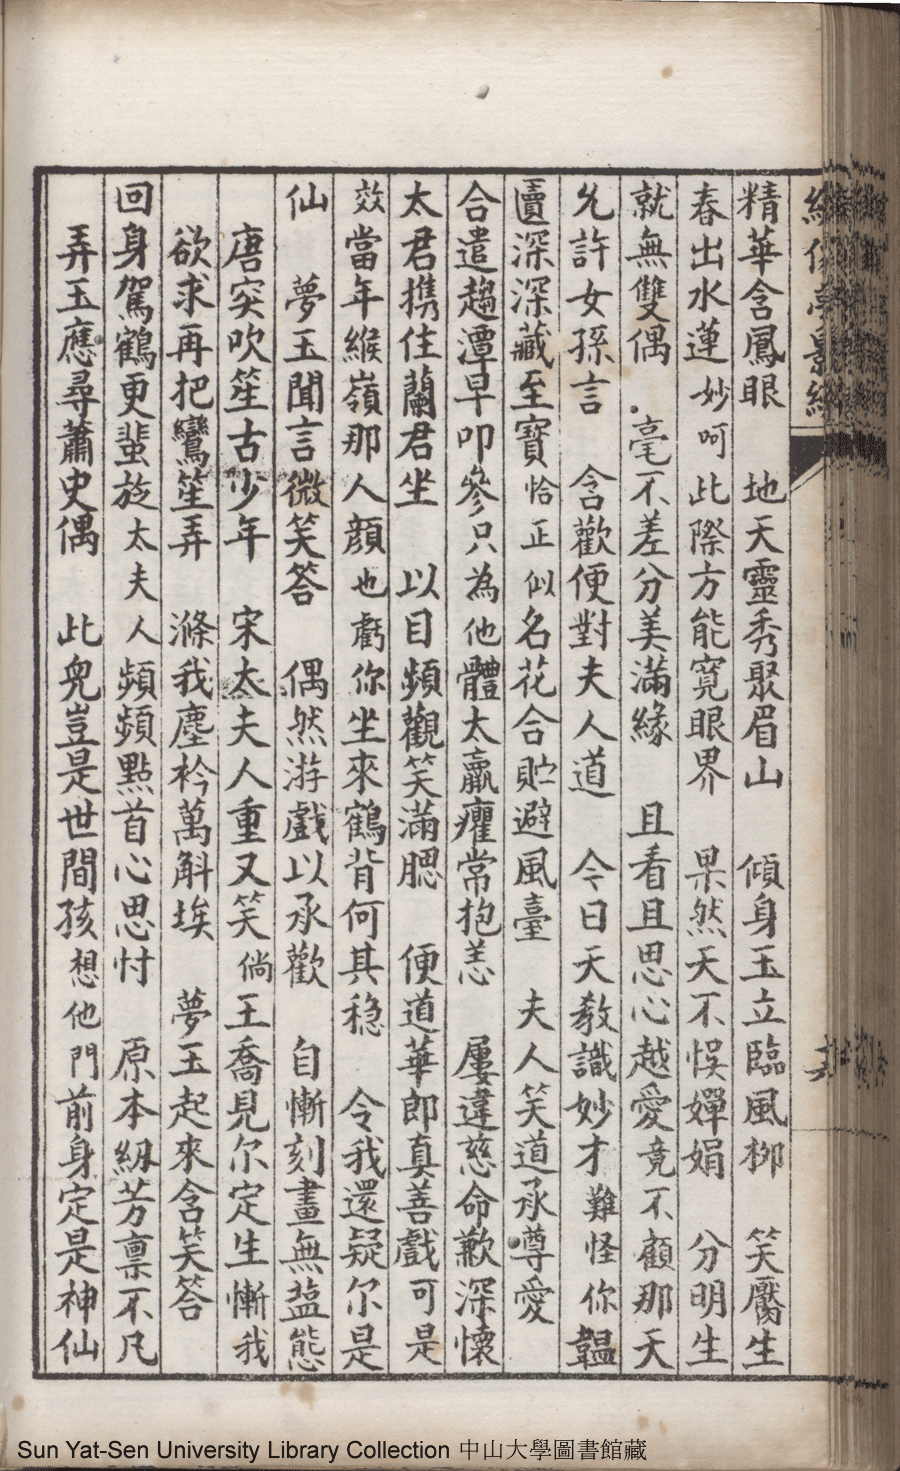 精華含鳳眼 地天靈秀聚眉山 傾身玉立臨風柳 笑靨生
春出水蓮妙呵此際方能寬眼界 果然天不悞嬋娟 分明生
就無雙偶 毫不差分美滿緣 且看且思心越愛竟不顧那天
允許女孫言 含歡便對夫人道 今日天教識妙才難怪你韞
匵深深藏至寶恰正似名花合貯避風臺 夫人笑道承尊愛
合遣趨潭早叩參只為他體太羸癯常抱恙 屢違慈命歉深懷
太君携住蘭君坐 以目頻觀笑滿腮 便道華郎真善戲可是
效當年緱嶺那人顔也虧你坐來鶴背何其穏 令我還疑尔是
仙 夢玉聞言微笑答 偶然游戲以承歡 自慚刻畫無盐態
唐突吹笙古少年 宋太夫人重又笑倘王喬見尔定生慚我
欲求再把鸞笙弄 滌我塵衿萬斛埃 夢玉起來含笑答
回身駕鶴更蜚旋太夫人頻頻點首心思忖 原本紉芳禀不凡
弄玉應尋蕭史偶 此兒豈是世間孩想他門前身定是神仙
Sun Yat-Sen University Library Collection 中山大學圖書館藏